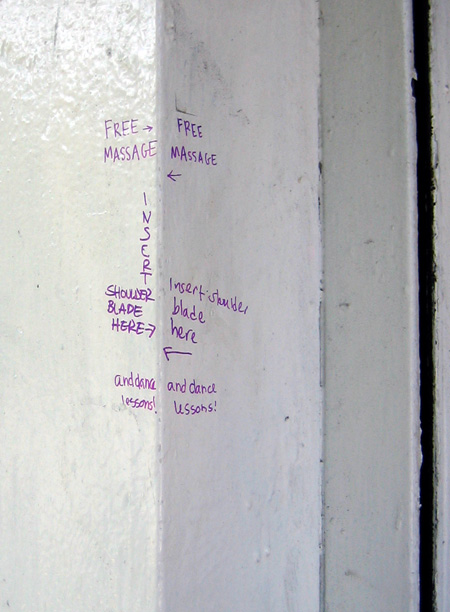 FREE →
MASSAGE
I
N
S
E
R
T
SHOULDER
BLADE
HERE →
and dance
lessons!
FREE
MASSAGE
←
Insert shoulder
blade
here
←
and dance
lessons!